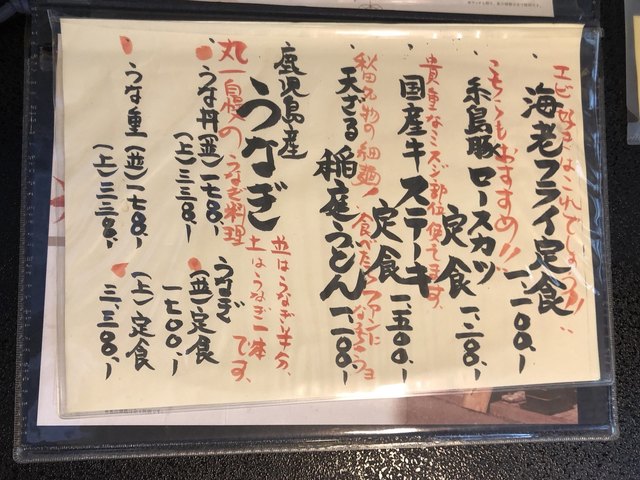 エビ好きはこれでしょう!!
海老フライ定食
一、一〇〇、ー
こちらもおすすめ!!
糸島豚ロースカツ
定食 一、二〇〇、ー
貴重なミスジ部位使てます。
国産牛ステーキ
定食 一、五〇〇、ー
秋田名物の細麺!食べたらファンになっちゃうョ
天ざる稲庭うどん 一、二〇〇、ー
鹿児島産
うなぎ
並はうなぎ半分、
上はうなぎ一本です。
丸一自慢のうなぎ料理
・うな丼(並)一七〇〇、ー
(上)三三〇〇、ー
・うな重(並)一七〇〇、ー
(上)三三〇〇、ー
うなぎ
(並)定食
一七〇〇、ー
(上)定食
三、三〇〇、ー